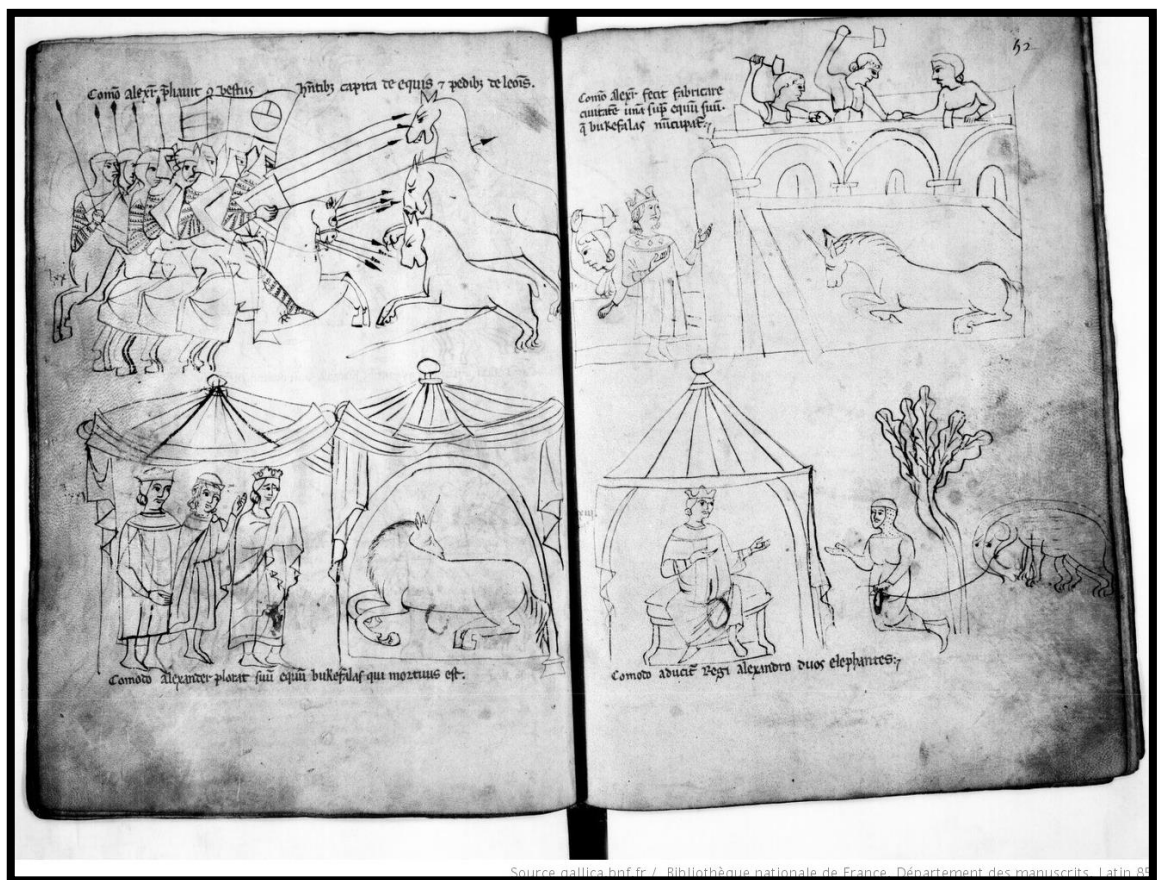 Comō alexr̄ p̄liauit ɔ̄ bestiis h̄ntibꝫ capita de equis ⁊ pedibꝫ de leōis.
Comodo Alexander plorat suū equū bukefalas qui mortuus est.
52
Comō Alexr̄ fecit fabricare
ciuitatē unā sup̄ equū suū.
q̄ bukefalas nūcupat᷑
Comodo aducit᷑ Regi alexandro duos elephantes
Source gallica.bnf.fr / Bibliothèque nationale de France. Département des manuscrits. Latin 85